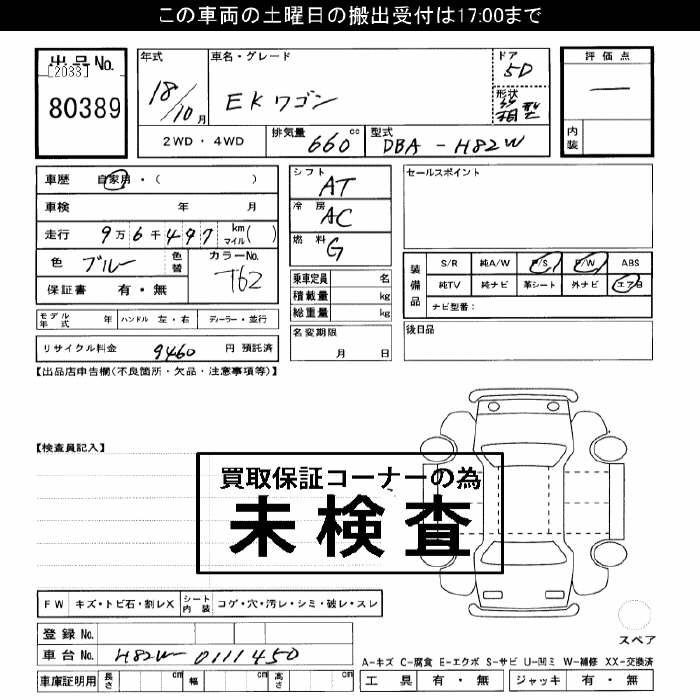 この車両の土曜日の搬出受付は17:00まで
出品No.
[2033]
80389
年式
18/10月
車名・グレード
EKワゴン
ドア
5D
形状
箱型
評価点
内装
2WD・4WD
排気量 660cc
型式 DBA-H82W
車歴 自家用・( )
車検 年 月
走行 9万6千497 km マイル( )
色 ブルー 色替
カラーNo. T62
保証書 有・無
シフト AT
冷房 AC
燃料 G
乗車定員 名
積載量 kg
総重量 kg
セールスポイント
装備品
S/R 純A/W P/S P/W ABS
純TV 純ナビ 革シート 外ナビ エアB
ナビ型番:
モデル年式 年 ハンドル 左・右 ディーラー・並行
名変期限 月 日
後日品
リサイクル料金 9460 円 預託済
【出品店申告欄(不良箇所・欠品・注意事項等)】
【検査員記入】
買取保証コーナーの為
未検査
FW キズ・トビ石・割レX シート内装 コゲ・穴・汚レ・シミ・破レ・スレ
登録No.
車台No. H82W-0111450
スペア
A-キズ C-腐食 E-エクボ S-サビ U-凹ミ W-補修 XX-交換済
車庫証明用 長さ cm 幅 cm 高さ cm
工具 有・無 ジャッキ 有・無